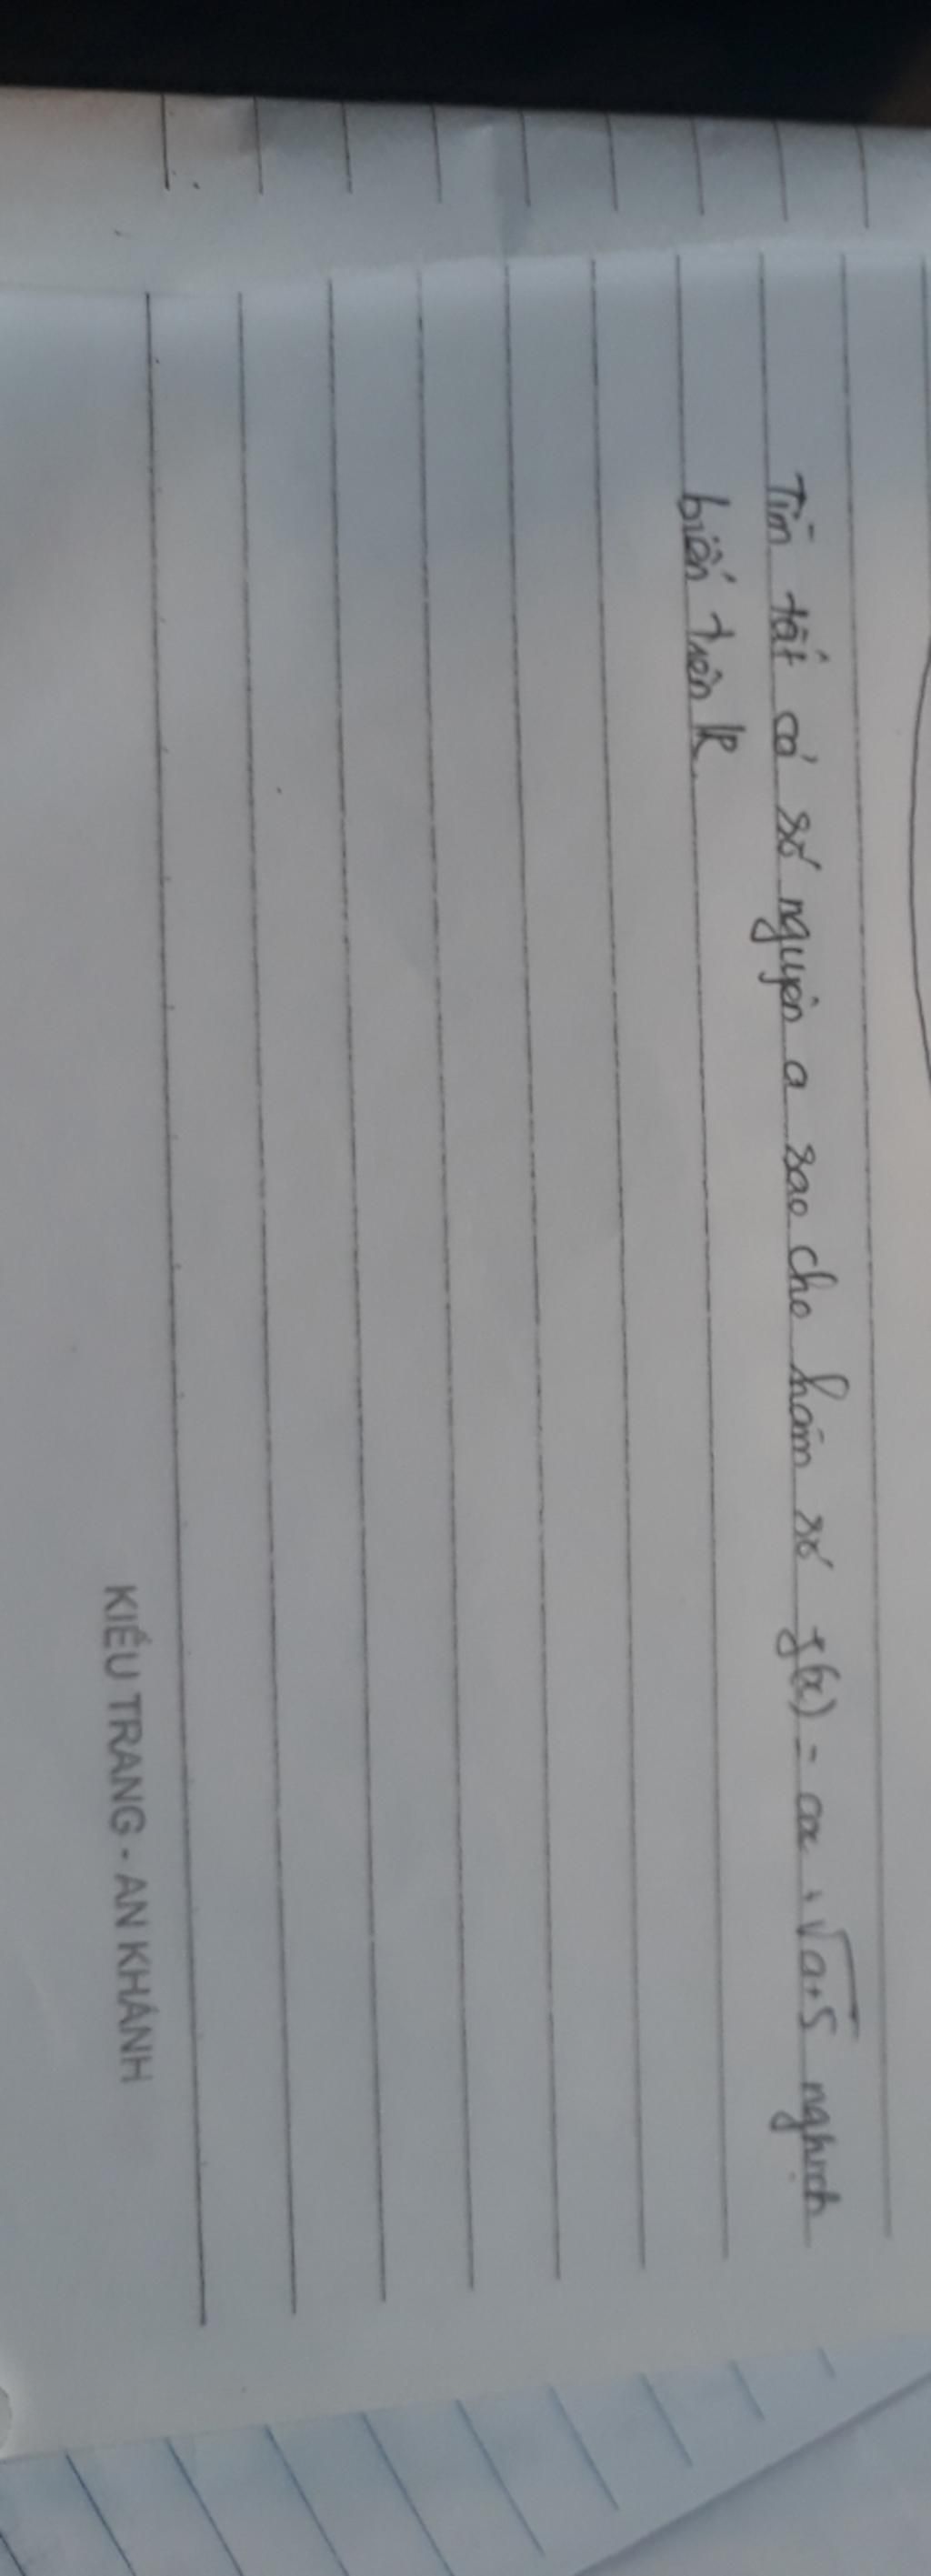 Tìm tất cả số nguyên a sao cho hàm số f(x) = ax + √a+5 nghịch
biến trên ℝ
KIỀU TRANG - AN KHÁNH